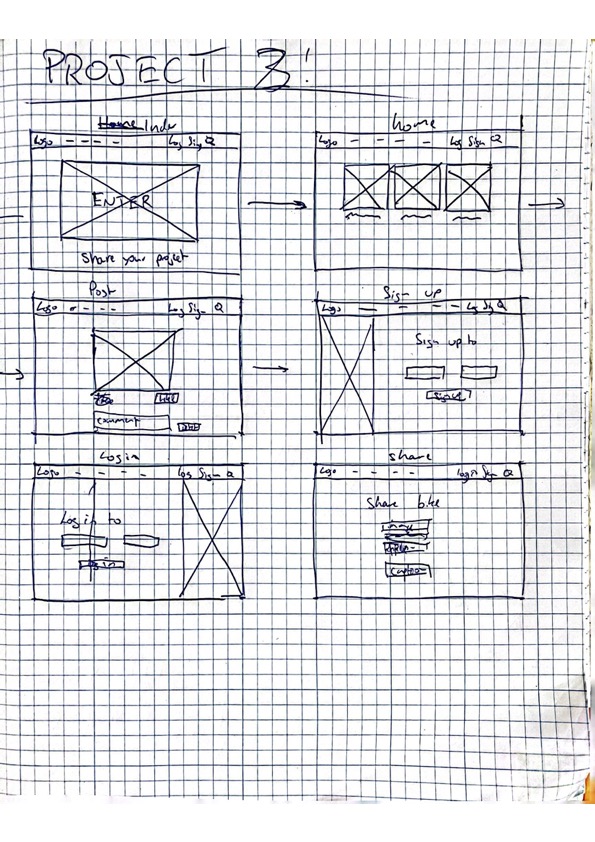 PROJECT 3!
Index
Logo Log Sign Q
ENTER
Share your
home
Logo Log Sign Q
Post
Logo Log Sign Q
comment
Sign up
Logo Log Sign Q
Sign up to
Sign up
Login
Logo Log Sign Q
Log in to
Log in
Share
Logo Login Sign Q
Share
image
Caption